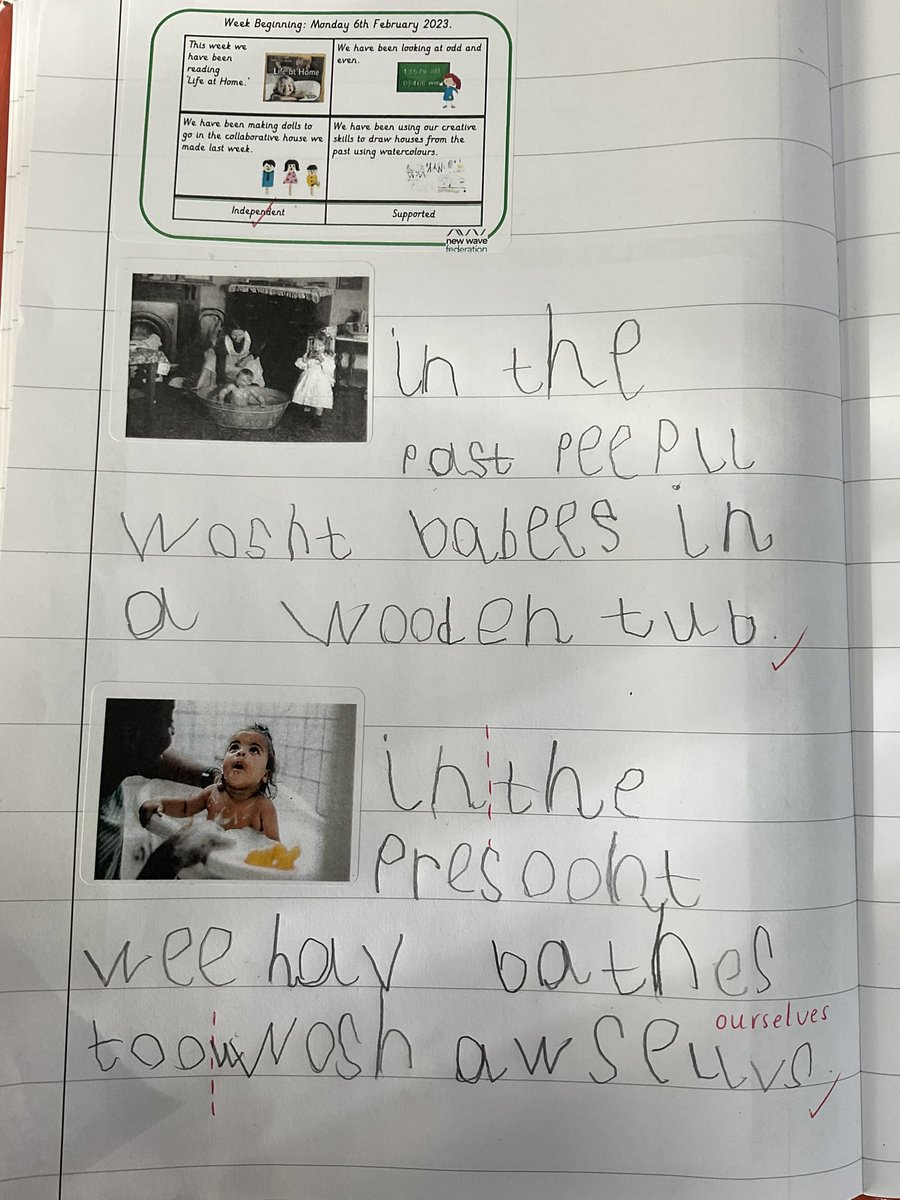 Week Beginning: Monday 6th February 2023.
This week we
have been
reading
'Life at Home.'
Life at Home
We have been looking at odd and
even.
13579 odd
02468 even
We have been making dolls to
go in the collaborative house we
made last week.
We have been using our creative
skills to draw houses from the
past using watercolours.
Independent
Supported
new wave
federation
in the
past peepll
wosht babees in
a wooden tub.
in the
presoont
wee hav bathes
ourselves
too wosh awsellvs.